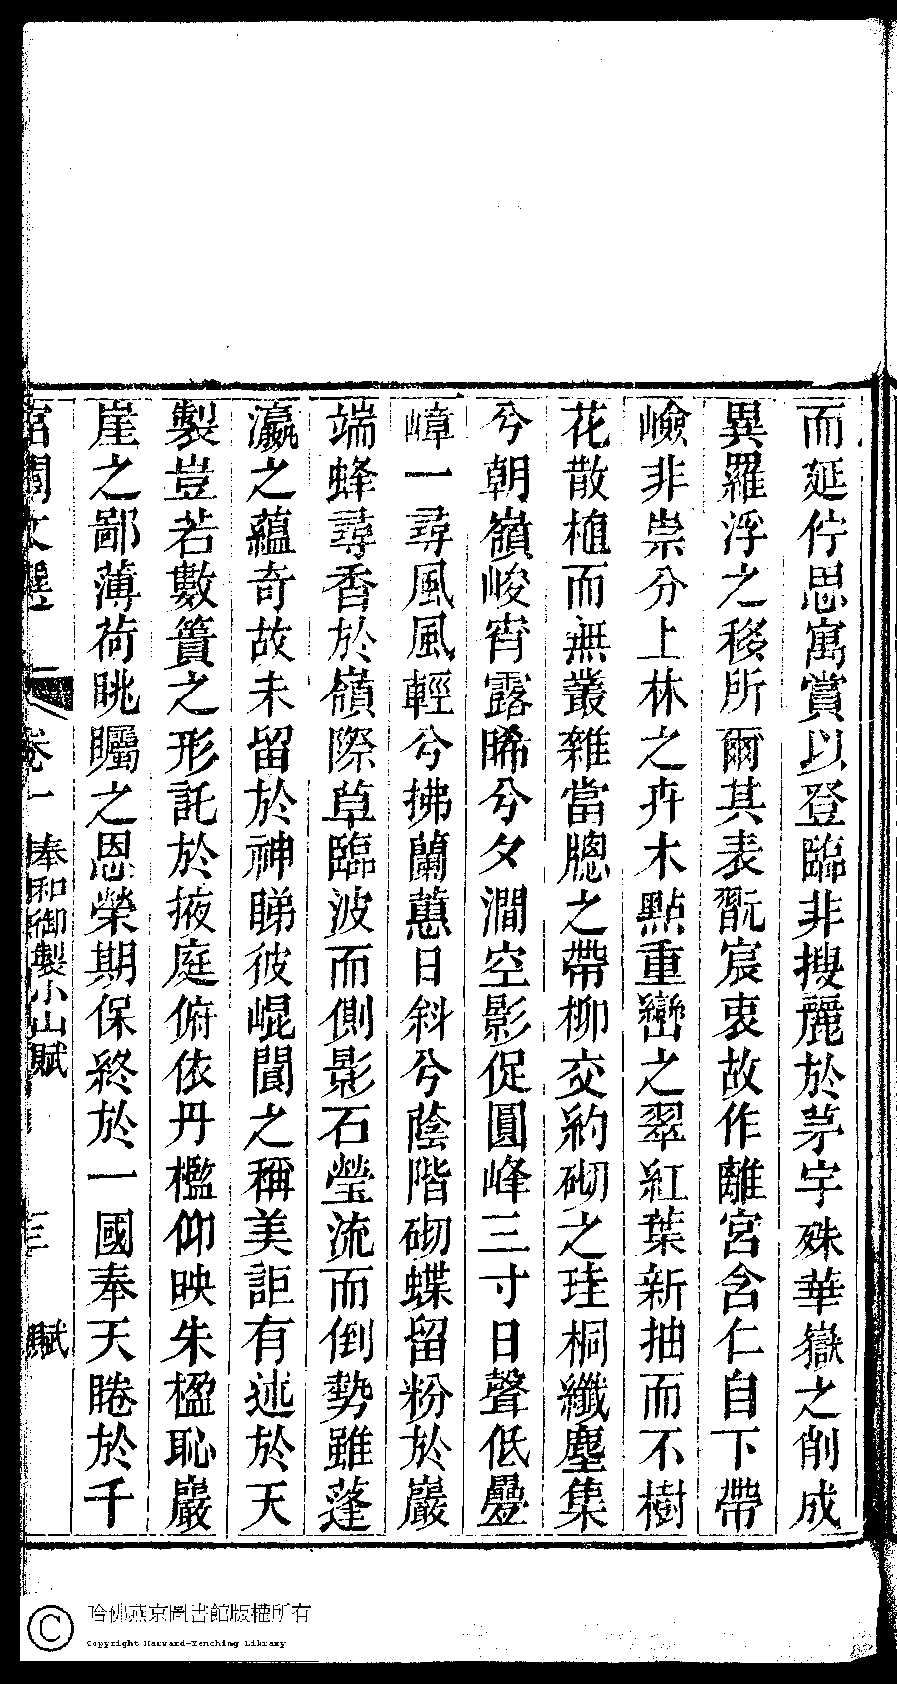 而延佇思寓賞以登臨非搜麗於茅宇殊華嶽之削成
異羅浮之移所爾其表翫宸衷故作離宮含仁自下帶
嶮非崇分上林之卉木點重巒之翠紅葉新抽而不樹
花散植而無叢雜當牕之帶柳交約砌之珪桐纖塵集
兮朝嶺峻宵露晞兮夕澗空影促圓峰三寸日聲低疊
嶂一尋風風輕兮拂蘭蕙日斜兮陰階砌蝶留粉於巖
端蜂尋香於嶺際草臨波而側影石瑩流而倒勢雖蓬
瀛之蘊奇故未留於神睇彼崐閬之稱美詎有述於天
製豈若數簣之形託於掖庭俯依丹檻仰映朱楹恥巖
崖之鄙薄荷眺矚之恩榮期保終於一國奉天睠於千
宮閨文選 卷一 奉和御製小山賦 三 賦
哈佛燕京圖書館版權所有
Copyright Harvard-Yenching Library